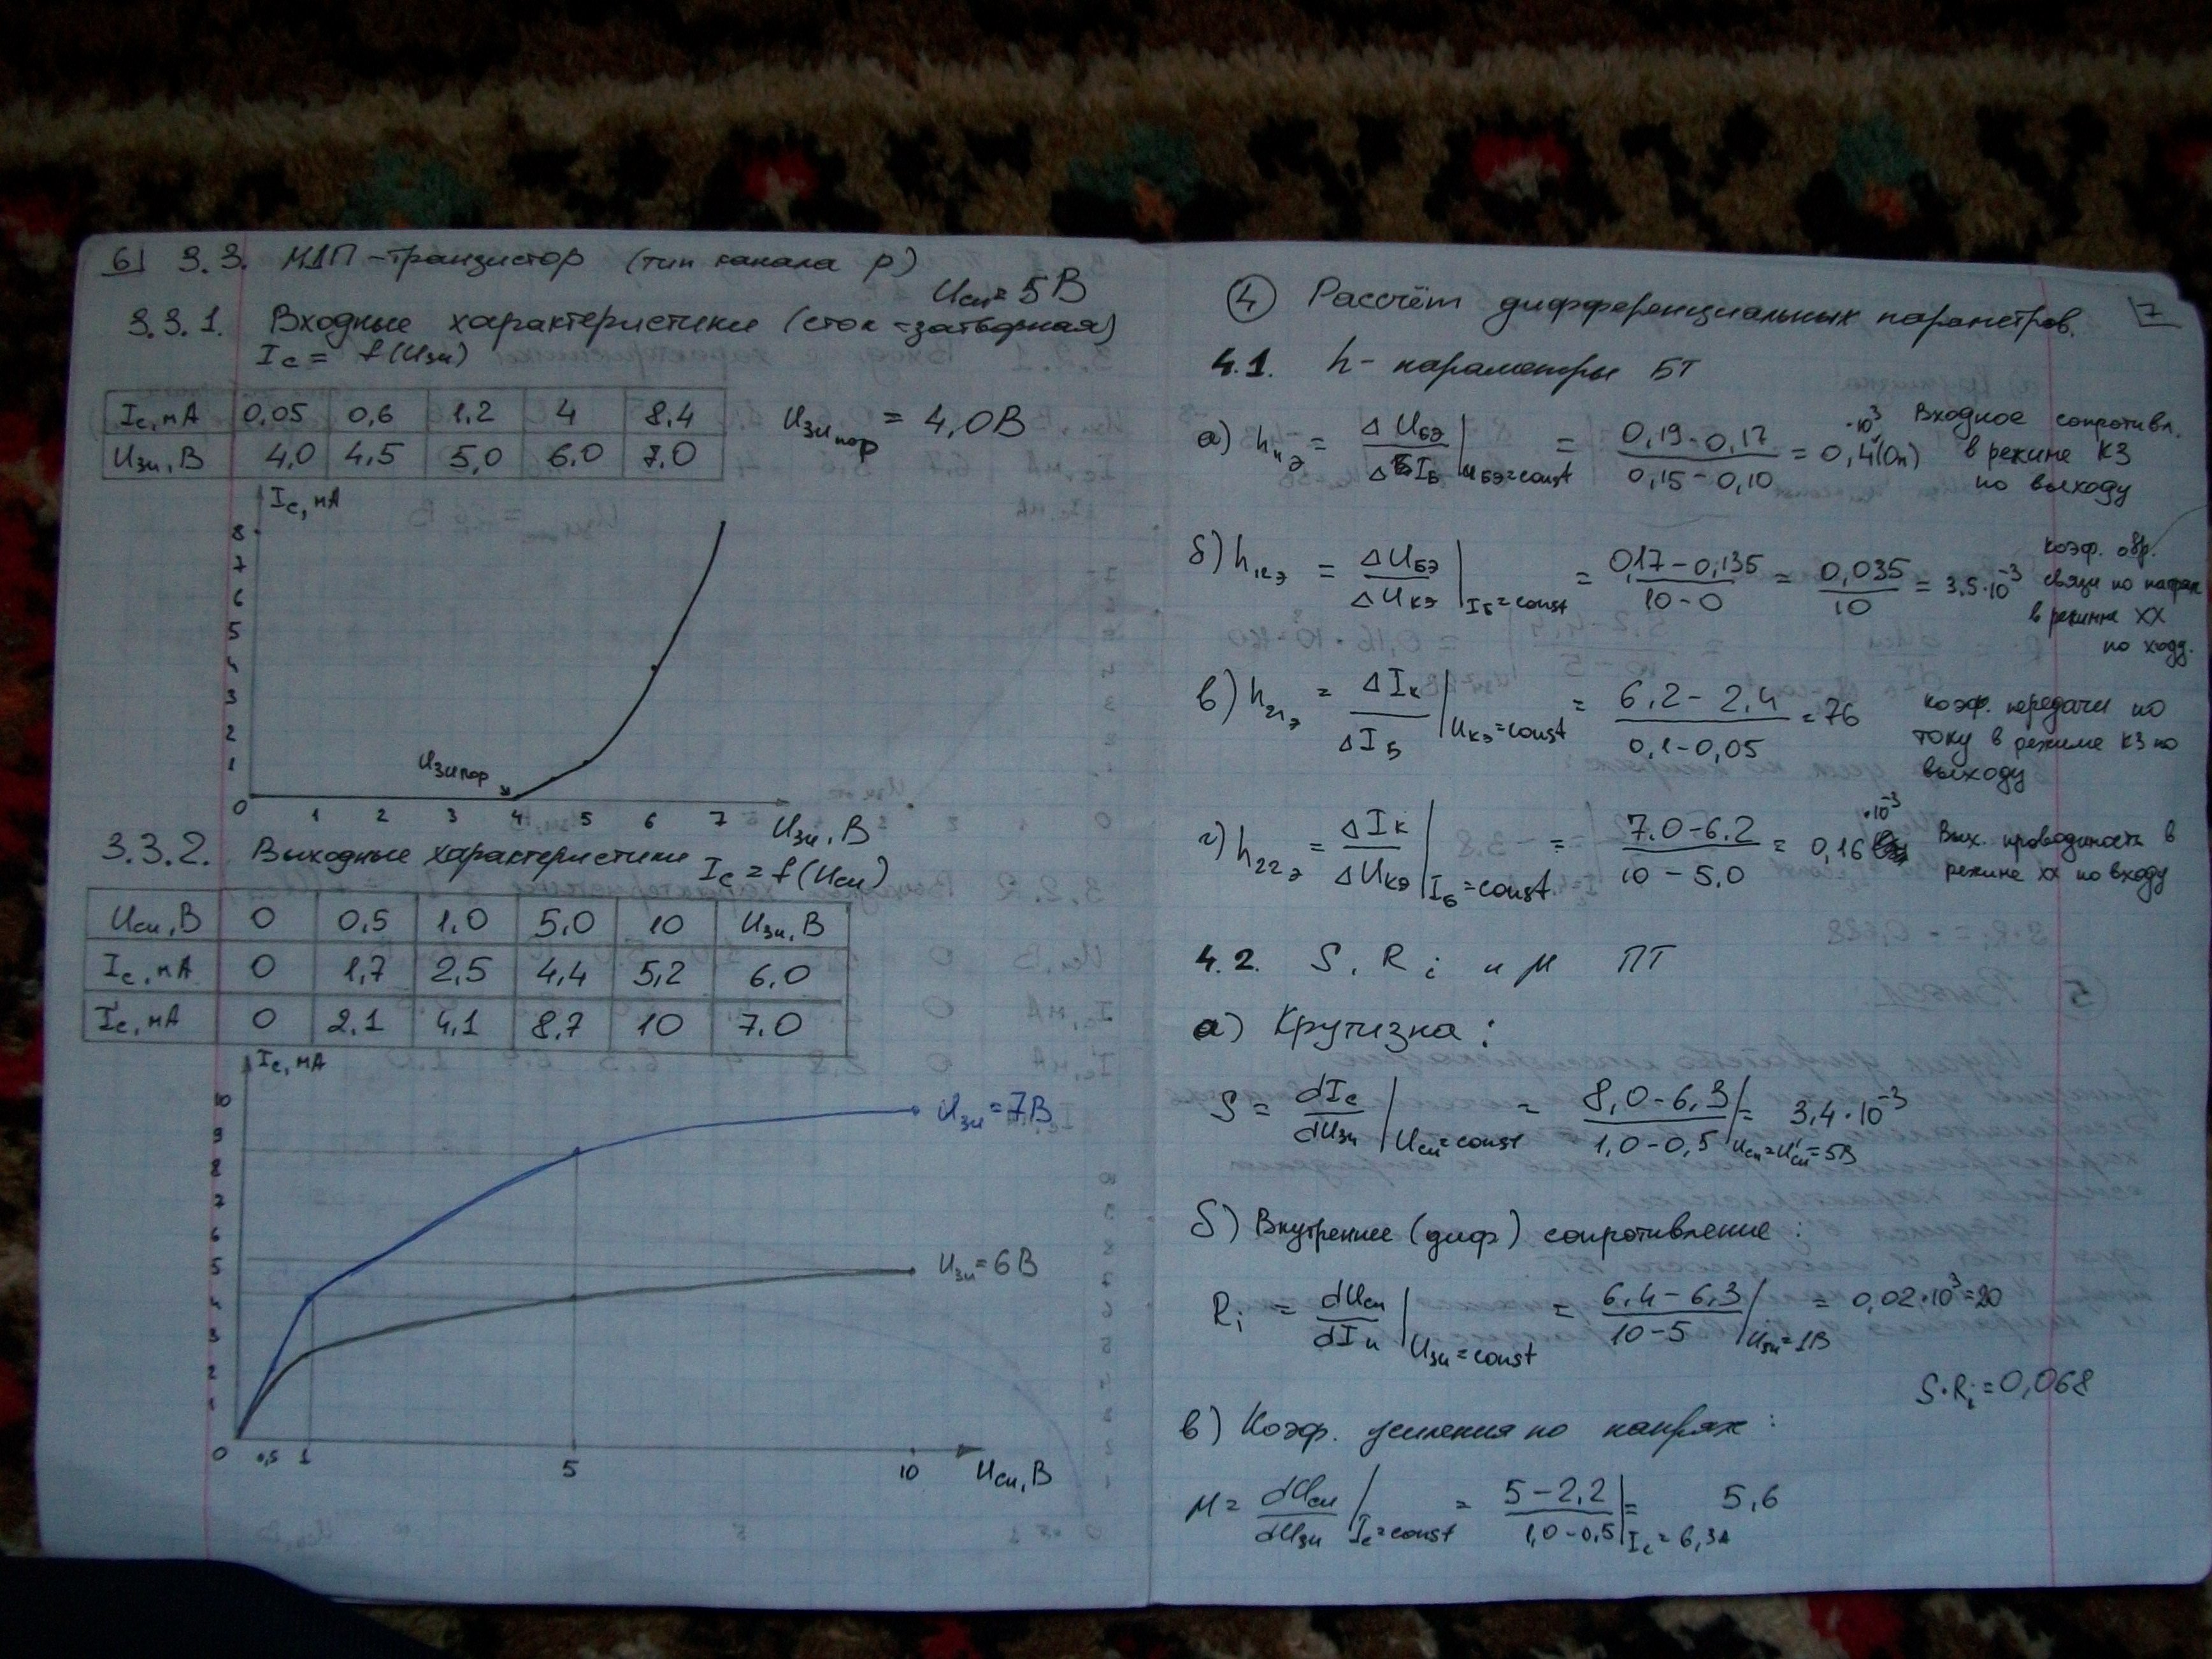 6] 3.3. МДП-транзистор (тип канала p)
Uси= 5В
3.3.1. Входные характеристики (сток-затворная)
Iс = f(Uзи)
Iс,мА 0,05 0,6 1,2 4 8,4
Uзи,В 4,0 4,5 5,0 6,0 7,0
Uзи пор = 4,0В
Iс,мА
8
7
6
5
4
3
2
1
Uзи пор
0 1 2 3 4 5 6 7 Uзи,В
3.3.2. Выходные характеристики Iс = f(Uси)
Uси,В 0 0,5 1,0 5,0 10 Uзи,В
Iс,мА 0 1,7 2,5 4,4 5,2 6,0
Iс,мА 0 2,1 4,1 8,7 10 7,0
Iс,мА
10
9
8
7
6
5
4
3
2
1
Uзи=7В
Uзи=6В
0 0,5 1 5 10 Uси,В
④ Рассчёт дифференциальных параметров. 7
4.1. h-параметры БТ
а) h11э = ΔUБЭ / ΔIБ | UБЭ=const = 0,19-0,17 / 0,15-0,10 = 0,4(Ом) ·10³ Входное сопротивл.
в режиме КЗ
по выходу
б) h12э = ΔUБЭ / ΔUКЭ | IБ=const = 0,17-0,135 / 10-0 = 0,035 / 10 = 3.5·10⁻³ коэф. обр.
связи по напряж
в режиме ХХ
по ходу.
в) h21э = ΔIк / ΔIБ | UКЭ=const = 6,2-2,4 / 0,1-0,05 = 76 коэф. передачи по
току в режиме КЗ по
выходу
г) h22э = ΔIк / ΔUКЭ | IБ=const = 7.0-6.2 / 10-5.0 = 0,16 ·10⁻³ Вых. проводимость в
режиме хх по входу
4.2. S, Ri и μ ПТ
а) Крутизна:
S = dIс / dUзи | Uси=const = 8,0-6,3 / 1,0-0,5 | Uси=U'си=5В = 3,4·10⁻³
б) Внутреннее (диф) сопротивление:
Ri = dUси / dIи | Uзи=const = 6,4-6,3 / 10-5 | Uзи=1В = 0,02·10³=20
S·Ri=0,068
в) Коэф. усиления по напряж:
μ = dUси / dUзи | Iс=const = 5-2,2 / 1,0-0,5 | Iс=6,3А = 5,6